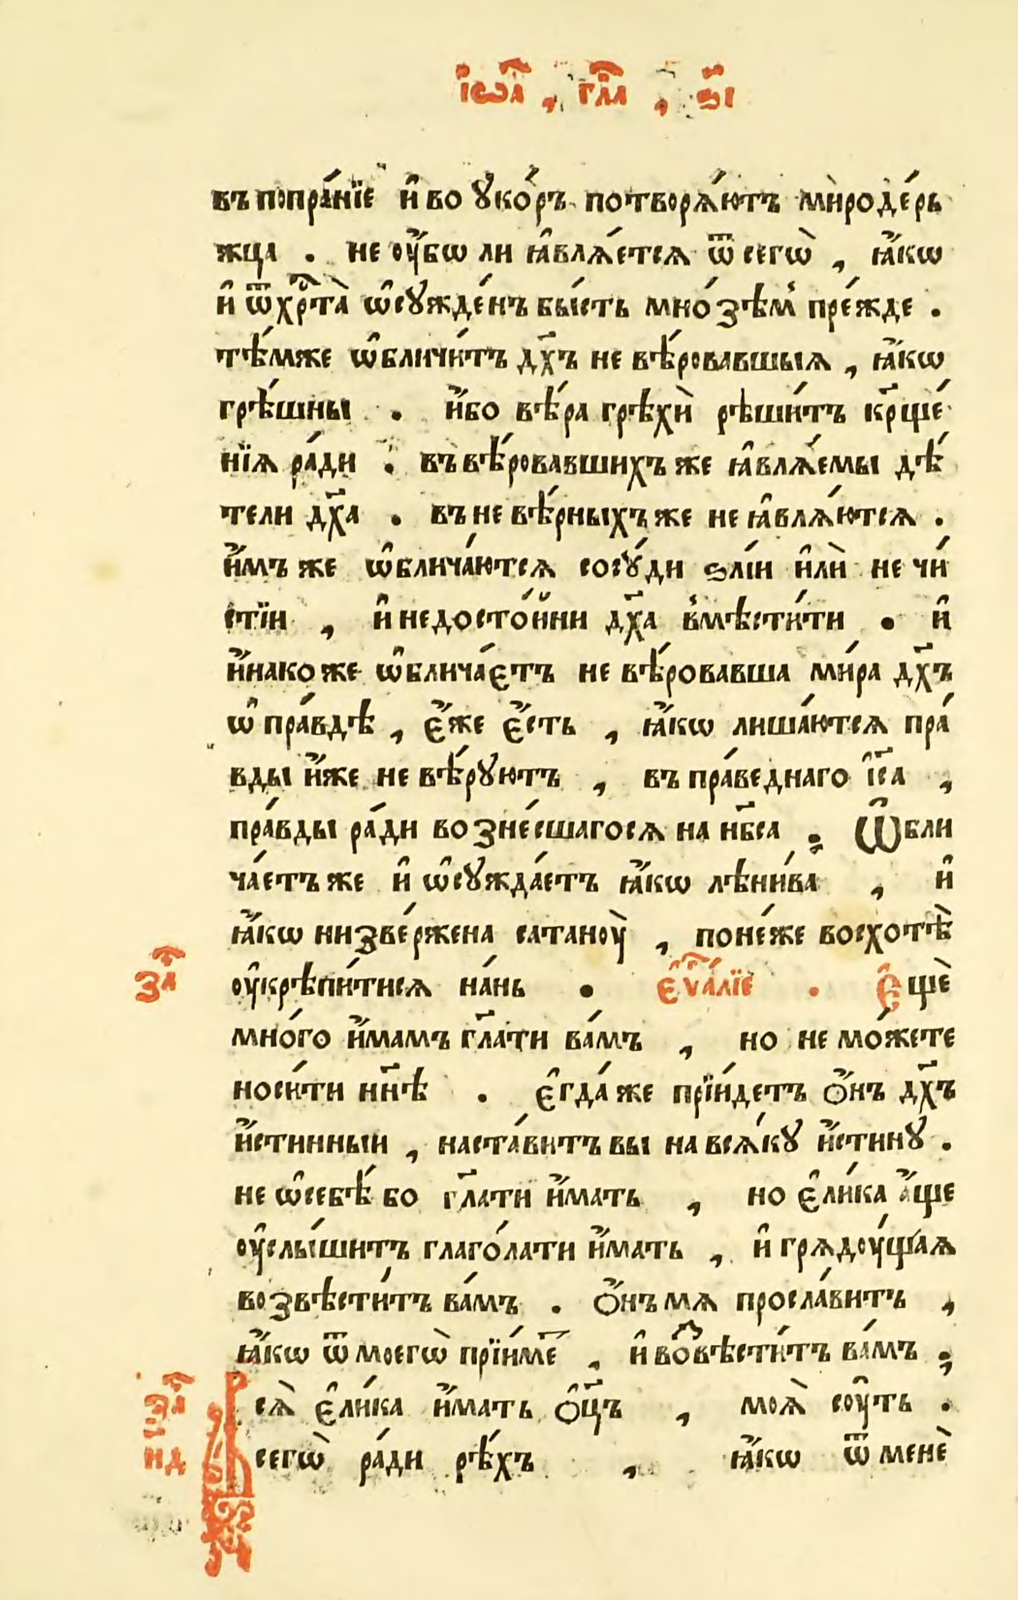 і҆ѡа҃ , гла҃ , ѕ҃і
въ попра́нїе и҆ во ᲂукѡ́ръ потворѧ́ютъ миродє́рь
жца . не ᲂу҆́бѡ ли ꙗ҆влѧ́етсѧ ѿ сегѡ̀ , ꙗ҆́кѡ
и҆ ѿ хрⷭ҇та̀ ѡ҆сꙋжде́нъ бы́сть мно́зѣмъ пре́жде .
тѣ́мже ѡ҆бличи́тъ дх҃ъ не вѣ́ровавшыѧ , ꙗ҆́кѡ
грѣ́шны . и҆́бо вѣ́ра грѣхѝ рѣши́тъ крⷭ҇ще́
нїѧ ра́ди . въ вѣ́ровавшихъ же ꙗ҆влѧ́емы дѣ́
тели дх҃а . въ не вѣ́рныхъ же не ꙗ҆влѧ́ютсѧ .
и҆́мъ же ѡ҆блича́ютсѧ сосꙋ́ди ѕлі́и и҆лѝ не чи́
стїи , и҆ недосто́йни дх҃а вмѣсти́ти . и҆
и҆́накоже ѡ҆блича́єтъ не вѣ́ровавша ми́ра дх҃ъ
ѡ҆ пра́вдѣ , є҆́же є҆́сть , ꙗ҆́кѡ лиша́ютсѧ пра́
вды и҆́же не вѣ́рꙋютъ , въ пра́веднаго і҆с҃а ,
пра́вды ра́ди вознє́сшагосѧ на нб҃са . Ѡ҆бли
ча́етъ же и҆ ѡ҆сꙋжда́етъ ꙗ҆́кѡ лѣни́ва , и҆
ꙗ҆́кѡ низве́ржена сатанᲂу̀ , поне́же восхотѣ̀
за҃ ᲂу҆крѣпи́тисѧ на́нь . є҆ѵⷢ҇а́лїе . Є҆щѐ
мно́го и҆́мамъ гл҃ати ва́мъ , но не мо́жете
носи́ти нн҃ѣ . є҆гда́ же прїи́детъ Ѻ҆́нъ дх҃ъ
и҆́стинныи , наста́витъ вы на всѧ́кꙋ и҆́стинꙋ .
не ѡ҆ себѣ́ бо гл҃ати и҆́мать , но є҆ли́ка а҆́ще
ᲂу҆слы́шитъ глаго́лати и҆́мать , и҆ грѧдᲂу́щаѧ
возвѣсти́тъ ва́мъ . Ѻ҆́нъ мѧ просла́витъ ,
ꙗ҆́кѡ ѿ моегѡ̀ прїи́ме , и҆ воⷥвѣсти́тъ ва́мъ .
Всѧ̀ є҆ли́ка и҆́мать Ѻ҆ц҃ъ , моѧ̀ сᲂу́ть .
сегѡ̀ ра́ди рѣ́хъ , ꙗ҆́кѡ ѿ менѐ